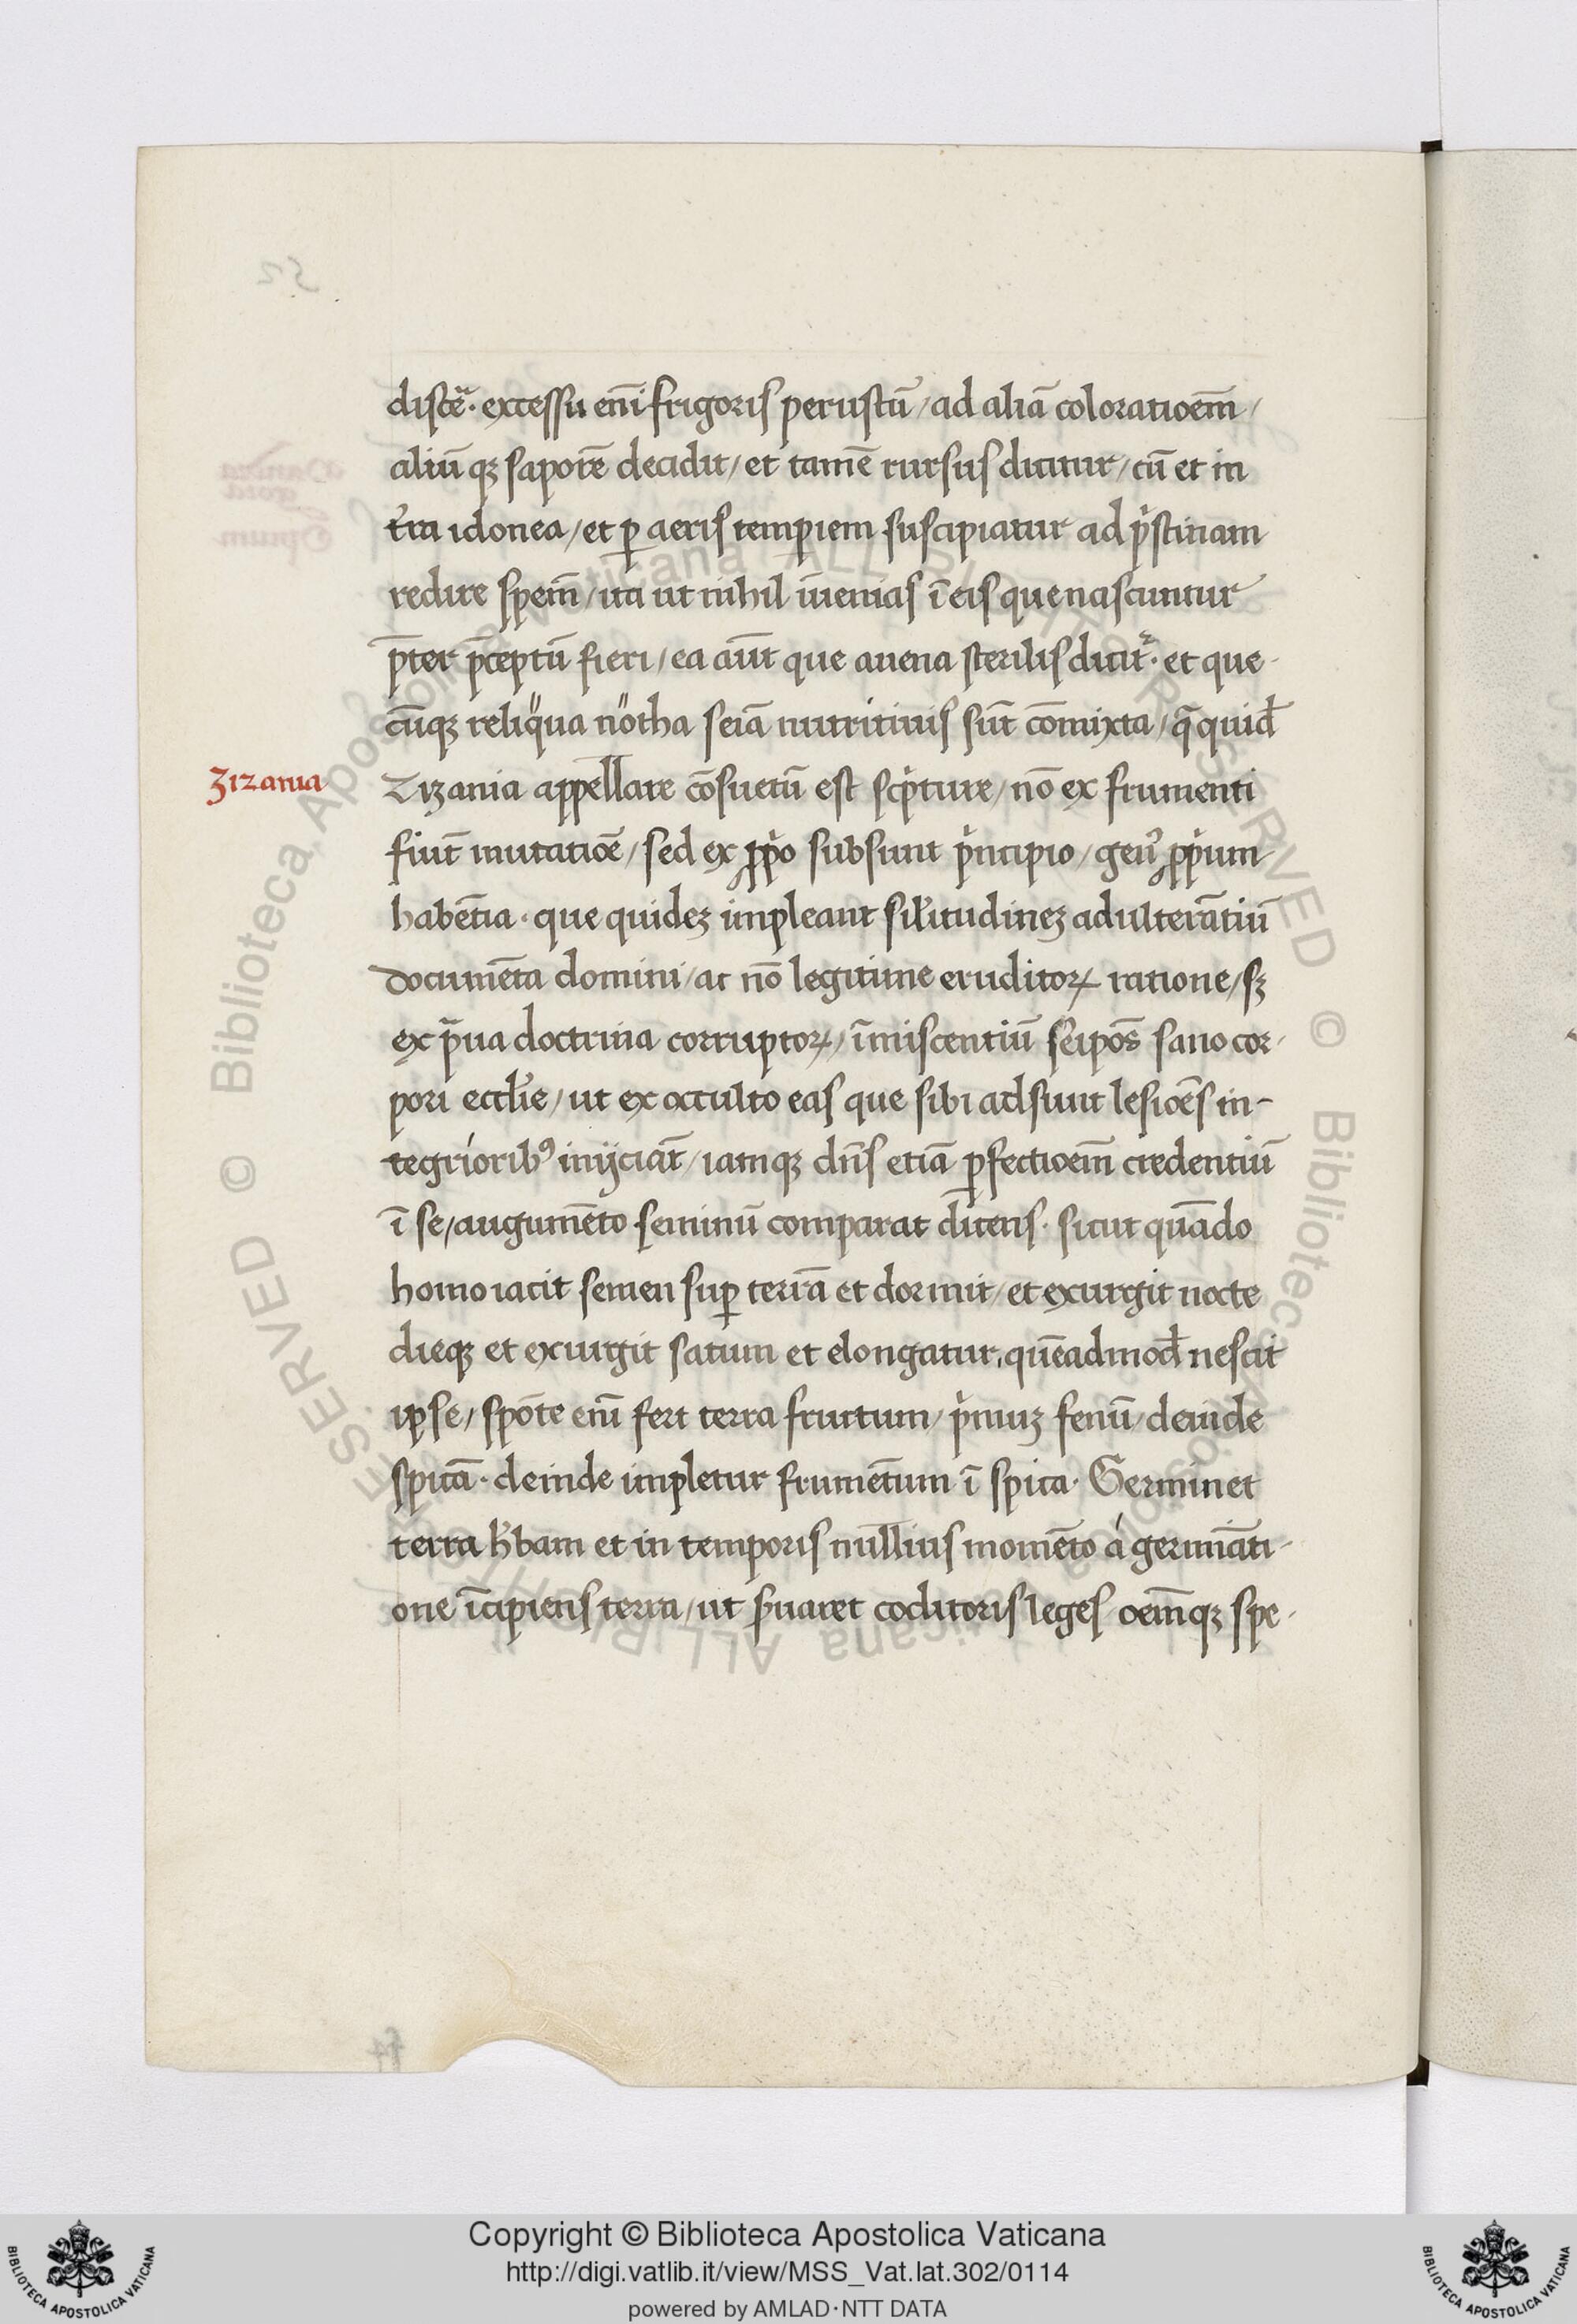 discẽᷓ· excessu enĩ frigoris perustũ / ad aliã coloratioẽm /
aliũ qꝫ saporẽ decidit / et tamẽ rursus dicitur / cũ et in
t̓ra idonea / et ꝑ aeris tempiem suscipiatur ad pͥstinam
redire spem̃ / ita ut nihil iũenias ĩ eis que nascuntur
p̃ter p̃ceptũ fieri / ea aũt que auena sterilis dicit᷑· et que-
cũqꝫ reliqua notha seiã nutritiuis sũt cõmixta / q̃ quid̃
Zizania
Zizania appellare cõsuetũ est scͥpture / nõ ex frumenti
fiũt mutatioẽ / sed ex ꝓpͥo subsunt pͥncipio / genꝰ ꝓpͥum
habẽtia · que quideꝫ impleant sil̓itudineꝫ adulterãtiũ
documẽta domini / ac nõ legitime eruditoꝝ ratione / sꝫ
ex pᷓua doctrina corruptoꝝ / ĩmiscentiũ seipõs sano cor-
pori eccl̓ie / ut ex occulto eas que sibi adsunt lesiões in-
tegrioribꝰ inijciãt / iamqꝫ dñs etiã ꝑfectioẽm credentiũ
ĩ se / augumẽto seminũ comparat dicens · sicut quãdo
homo iacit semen suꝑ terrã et dormit / et exurgit nocte
dieqꝫ et exiurgit satum et elongatur, quẽadmod̃ nescit
ipse / spõte enĩ fert terra fructum / pͥmuꝫ fenũ / deinde
spicã · deinde impletur frumẽtum ĩ spica · Germinet
terra h̓bam et in temporis nullius momẽto á germiãti-
one ĩcipiens terra / ut s̓uaret coditoris leges oẽmqꝫ spe-
Copyright © Biblioteca Apostolica Vaticana
http://digi.vatlib.it/view/MSS_Vat.lat.302/0114
powered by AMLAD·NTT DATA
BIBLIOTECA APOSTOLICA VATICANA
BIBLIOTECA APOSTOLICA VATICANA